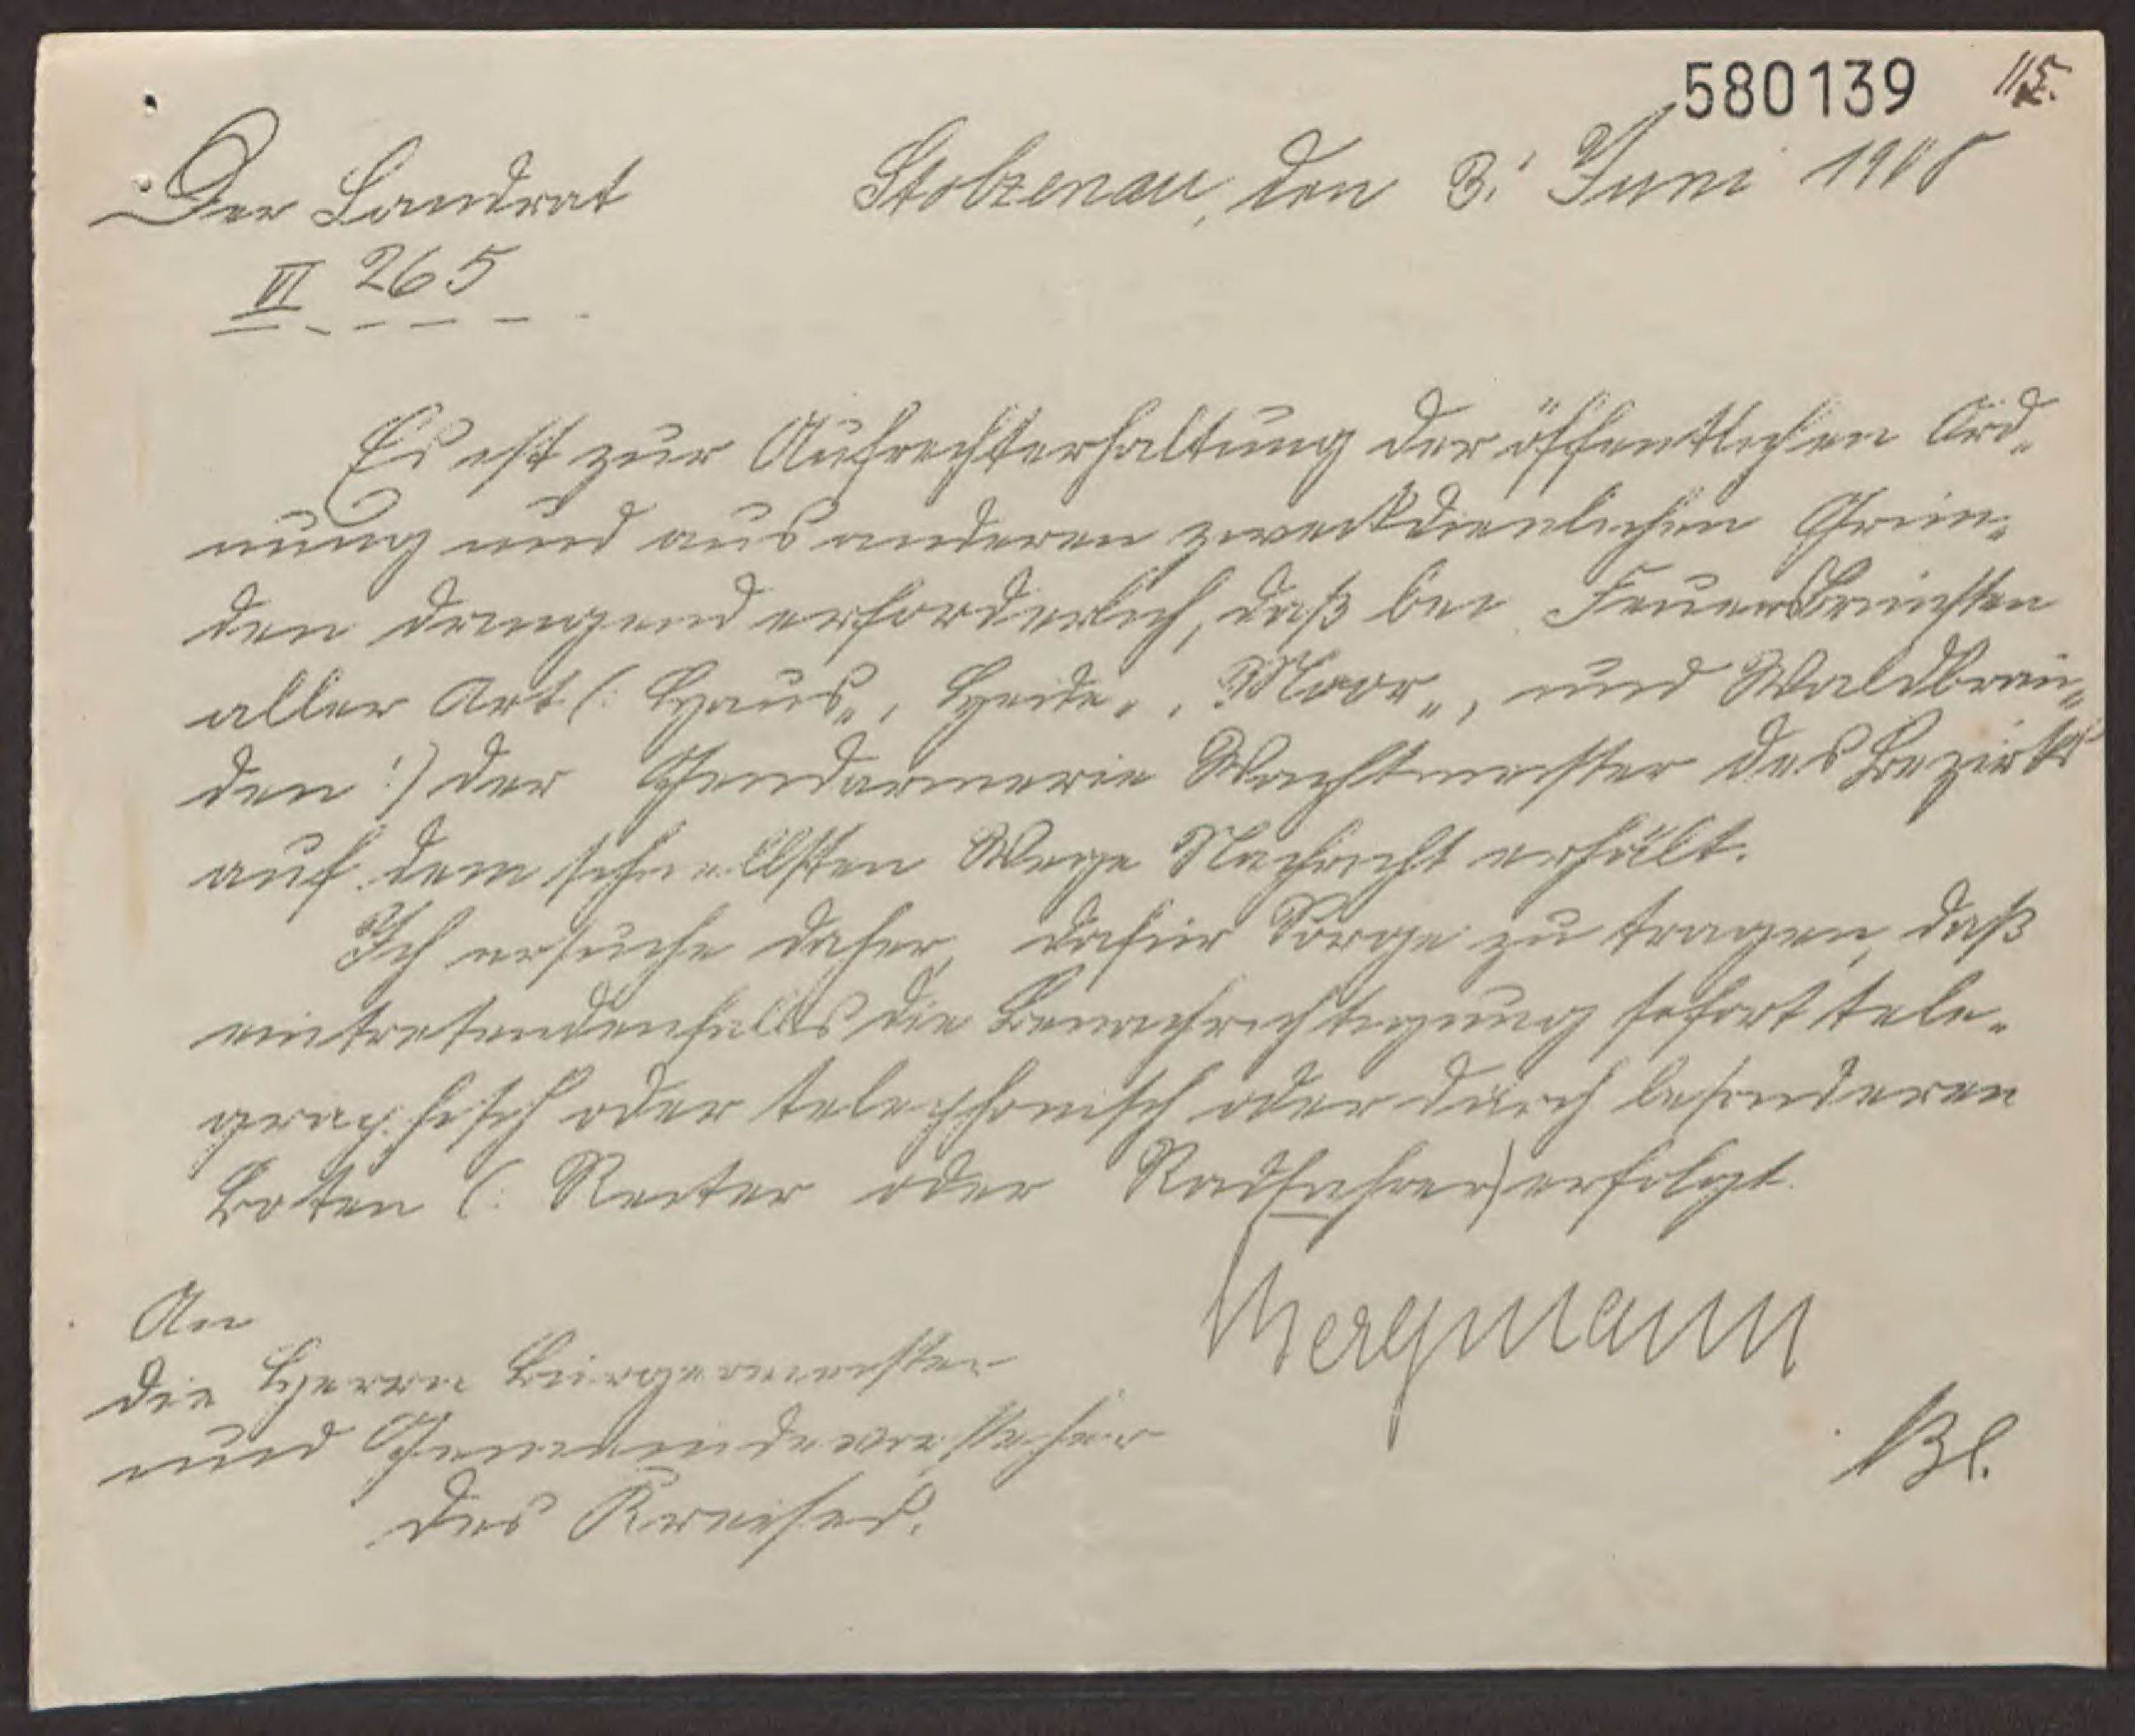 580139 115.
Der Landrat
Stolzenau, den 3. Juni 1908
VI 265
Es ist zur Aufrechterhaltung der öffentlichen Ord„
nung und aus anderen zweckdienlichen Grün„
den dringend erforderlich, daß bei Feuersbrünsten
aller Art (: Haus„, Heide„, Moor„, und Waldbrän„
den :) der Gendarmerie Wachtmeister des Bezirks
auf dem schnellsten Wege Nachricht erhält.
Ich ersuche daher, dafür Sorge zu tragen, daß
eintretendenfalls die Benachrichtigung sofort tele„
graphisch oder telephonisch oder durch besonderen
Boten (: Reiter oder Radfahrer) erfolgt.
Bergmann
An
die Herren Bürgermeister
und Gemeindevorsteher
des Kreises.
Bl.